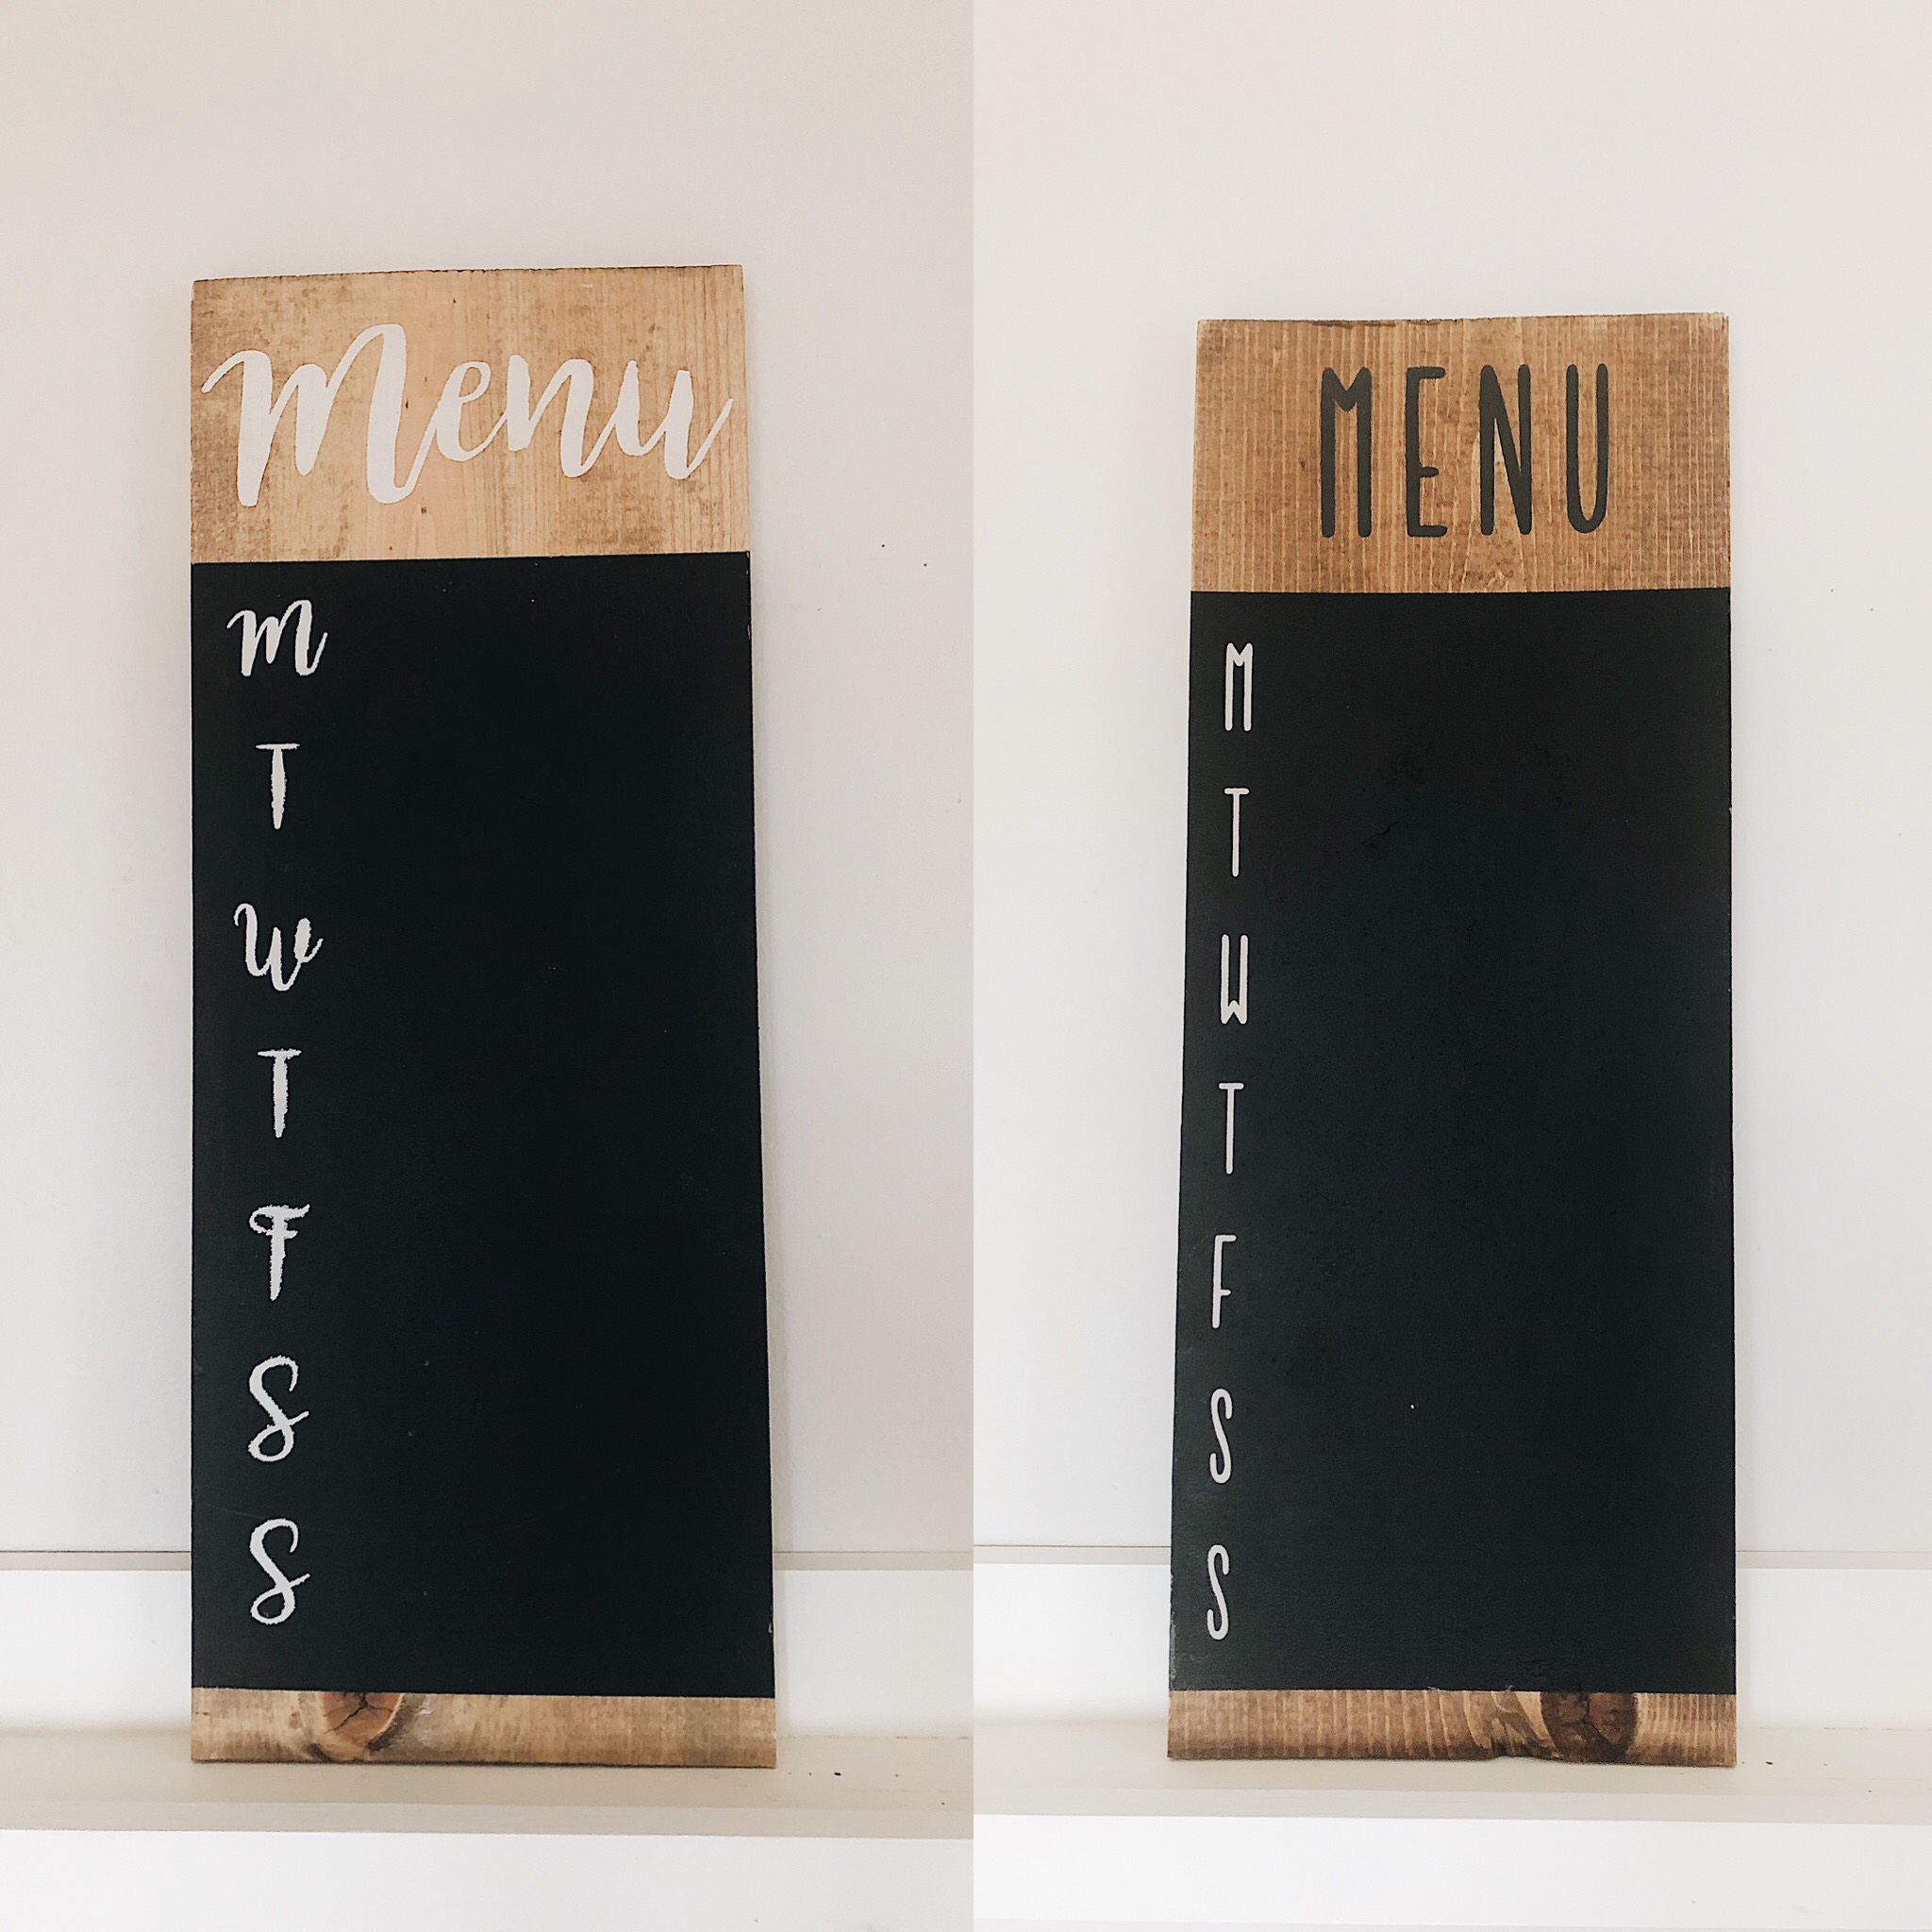 Menu
M
T
W
T
F
S
S
MENU
M
T
W
T
F
S
S